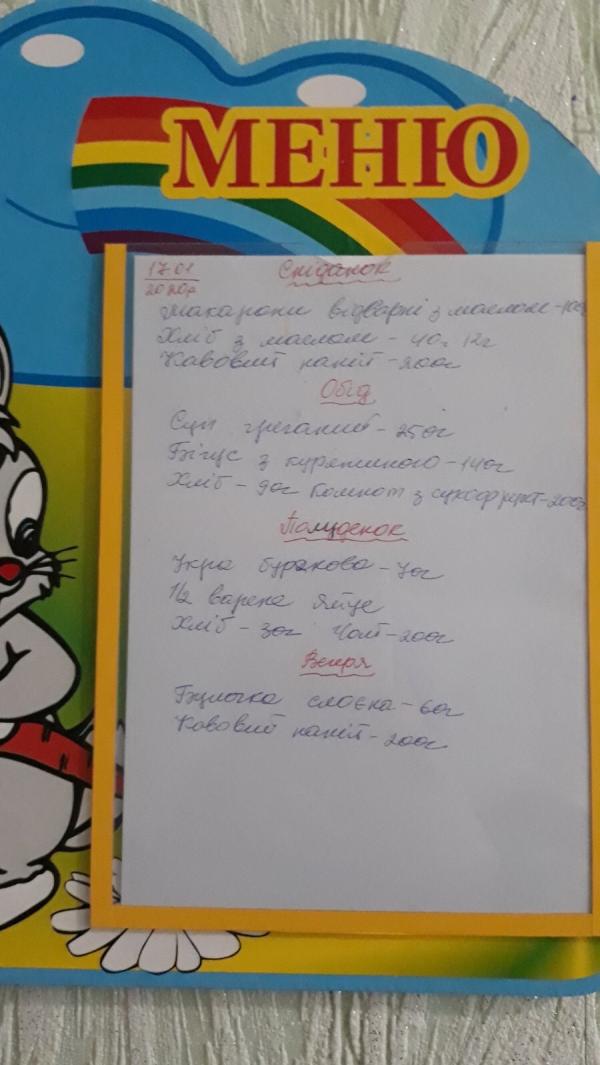 МЕНЮ
17.01
20 20р
Сніданок
Макарони відварні з маслом -
Хліб з маслом - 40г 12г
Кавовий напій - 200г
Обід
Суп - 250г
Бігус з куряtиною - 140г
Хліб - 90г Компот з сухофрукт - 200г
Полуденок
Ікра бурякова - 70г
1/2 варене яйце
Хліб - 30г Чай - 200г
Вечеря
Булочка слоєна - 60г
Кавовий напій - 200г